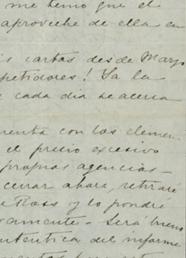 me lleno que el
aproveche de ella en
cartas desde Mayo
petidores! Ya la
cada dia se acerca
cuenta con los elemen
el precio excesivo
propias agencias
curar ahora, retraré
Ross y lo pondré
vamente - Será bueno
autentica del informe